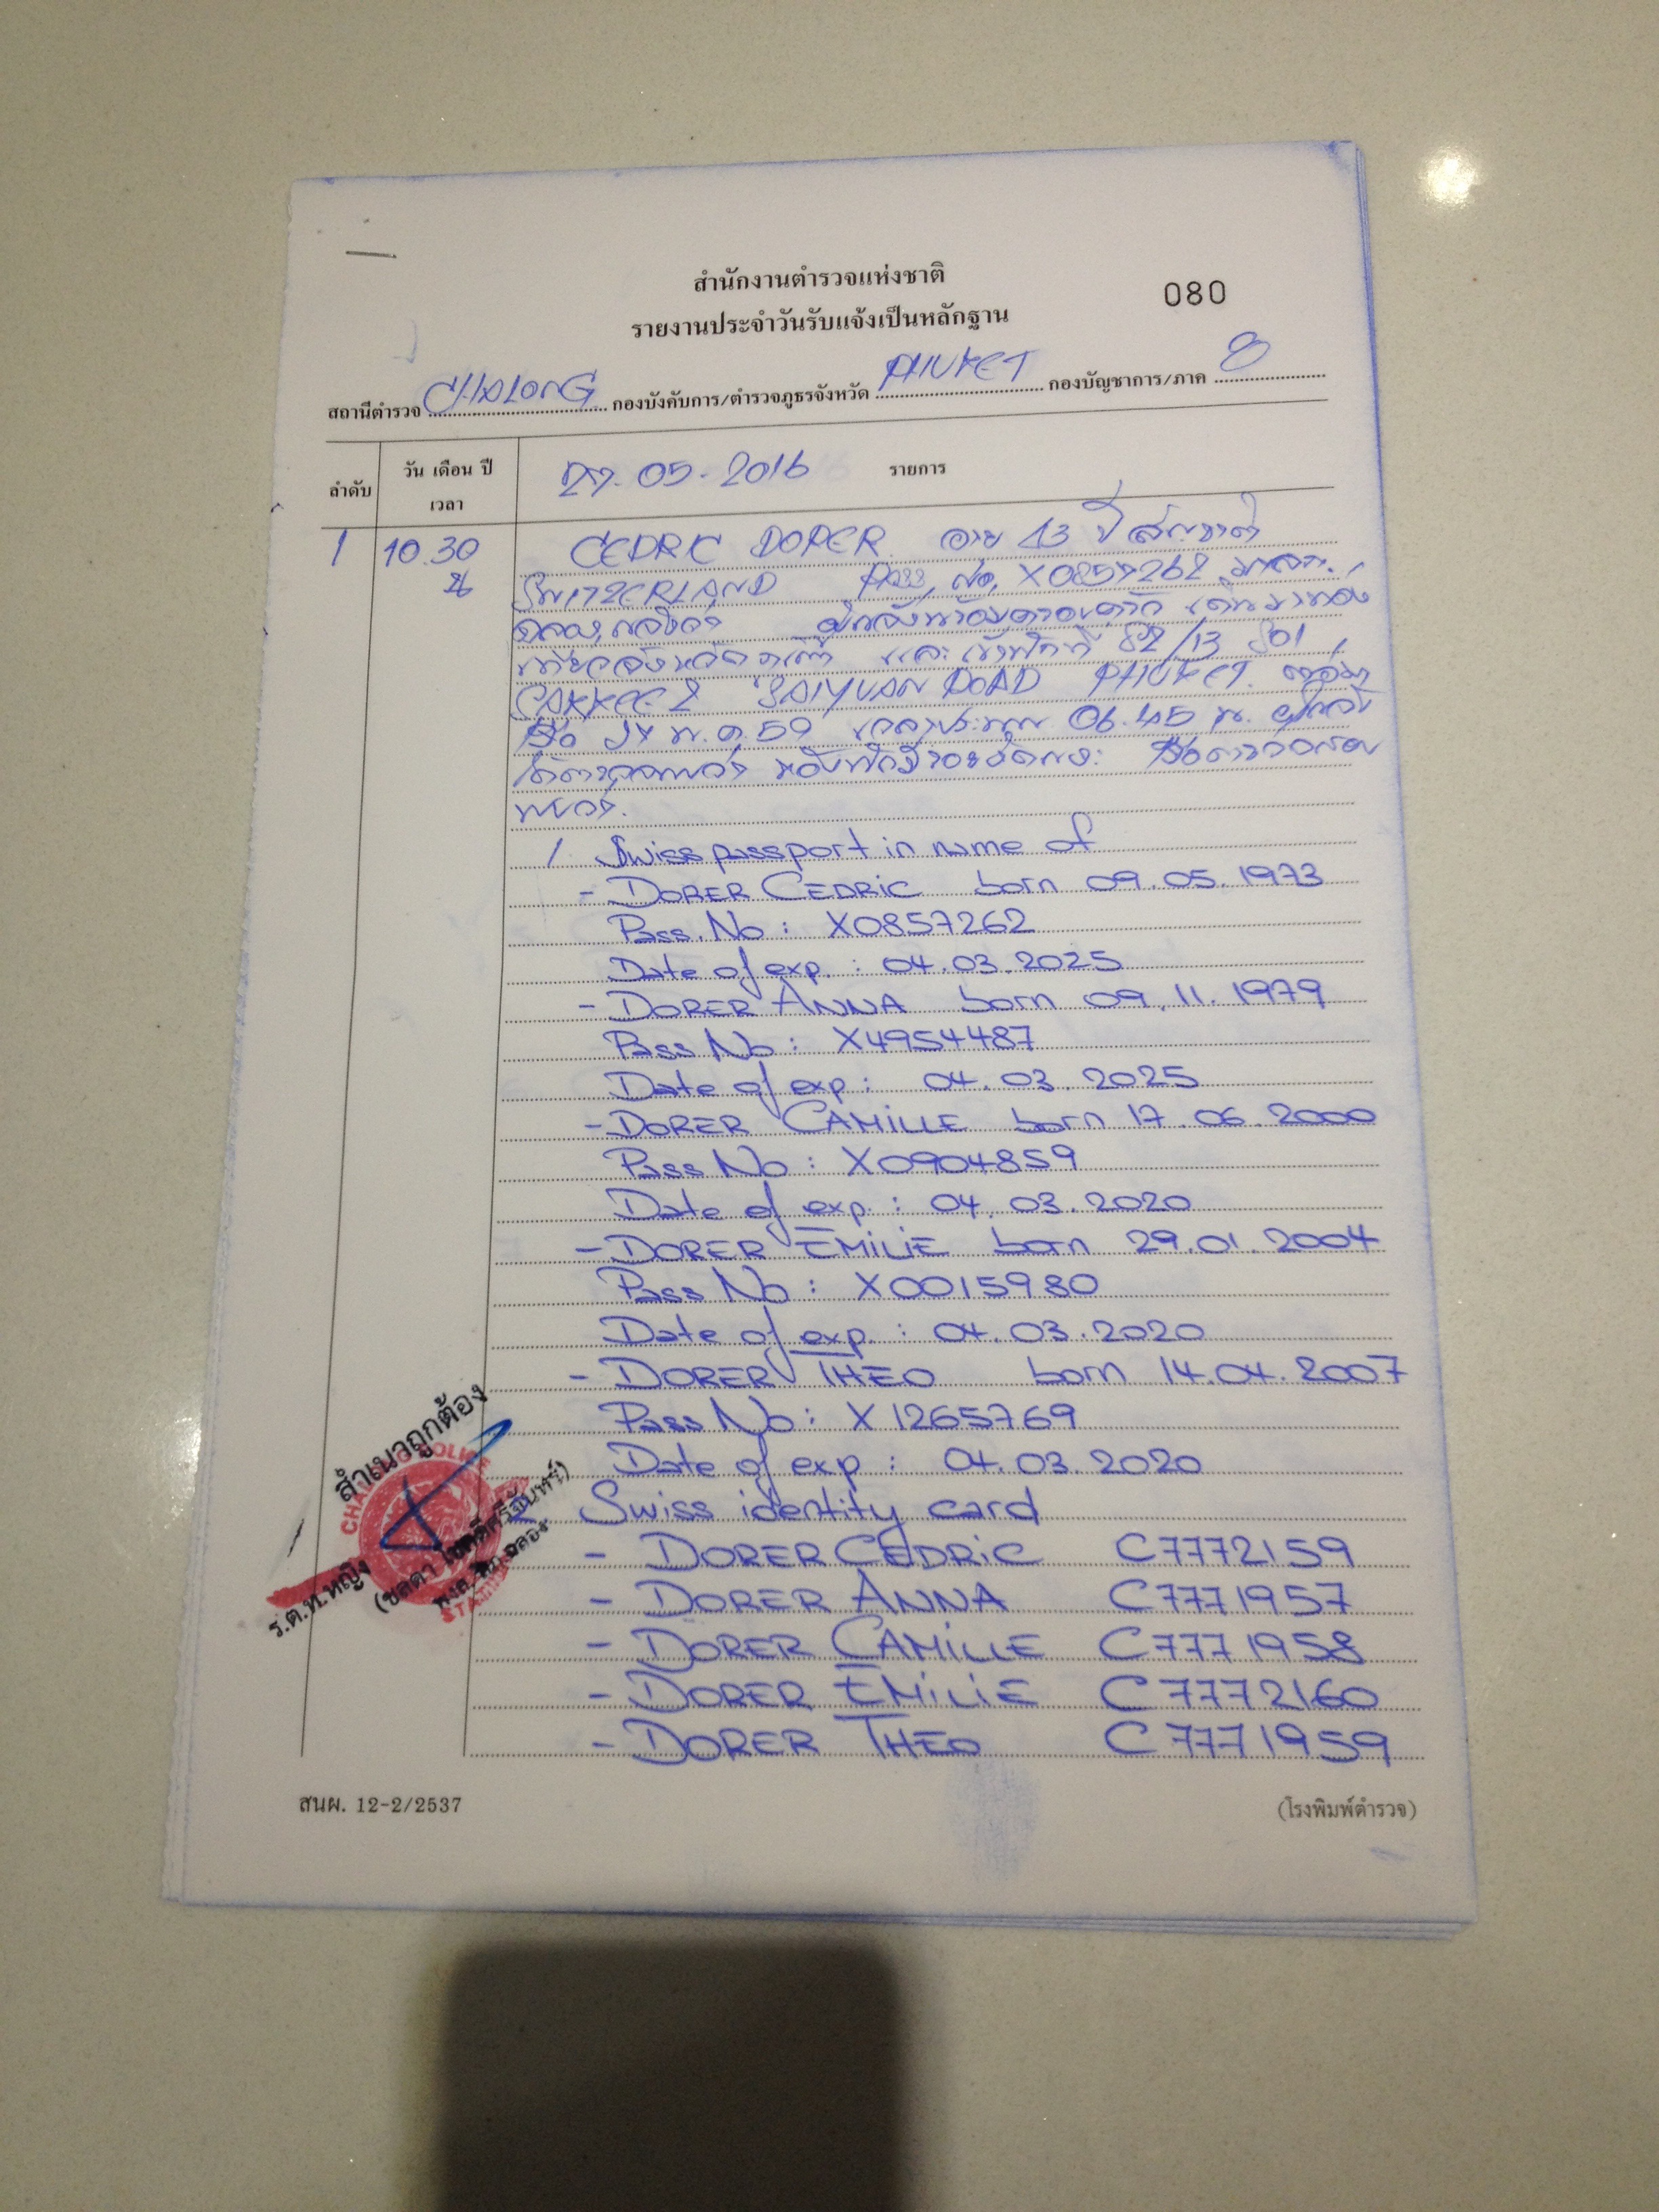 สำนักงานตำรวจแห่งชาติ
080
รายงานประจำวันรับแจ้งเป็นหลักฐาน
สถานีตำรวจ CHALONG กองบังคับการ/ตำรวจภูธรจังหวัด PHUKET กองบัญชาการ/ภาค 8
ลำดับ วัน เดือน ปี เวลา 27.05.2016 รายการ
1 10.30 น CEDRIC DORER อายุ 43 ปี สัญชาติ
SWITZERLAND Pass, No, X0857262
และเข้าพักที่ 82/13 SOI
SAIYUAN ROAD PHUKET.
พ.ค. 59 เวลาประมาณ 06.45 น. ผู้แจ้ง
พบว่า.
1. Swiss passport in name of
- DORER CEDRIC born 09.05.1973
Pass. No : X0857262
Date of exp. : 04.03.2025
- DORER ANNA born 09.11.1979
Pass No : X4954487
Date of exp : 04.03.2025
- DORER CAMILLE born 17.06.2000
Pass No : X0904859
Date of exp. : 04.03.2020
- DORER EMILIE born 29.01.2004
Pass No : X0015980
Date of exp. : 04.03.2020
- DORER THEO born 14.04.2007
Pass No : X1265769
Date of exp : 04.03.2020
2 Swiss identity card
- DORER CEDRIC C7772159
- DORER ANNA C7771957
- DORER CAMILLE C7771958
- DORER EMILIE C7772160
- DORER THEO C7771959
สำเนาถูกต้อง
ร.ต.ท.หญิง
สนผ. 12-2/2537
(โรงพิมพ์ตำรวจ)